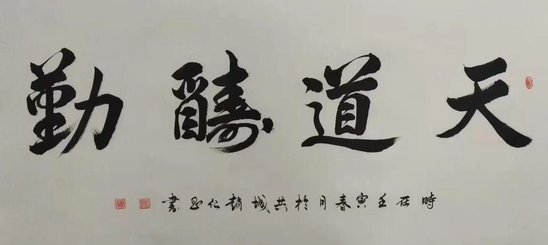 天道醻勤
時在壬寅春月於共城趙仁書